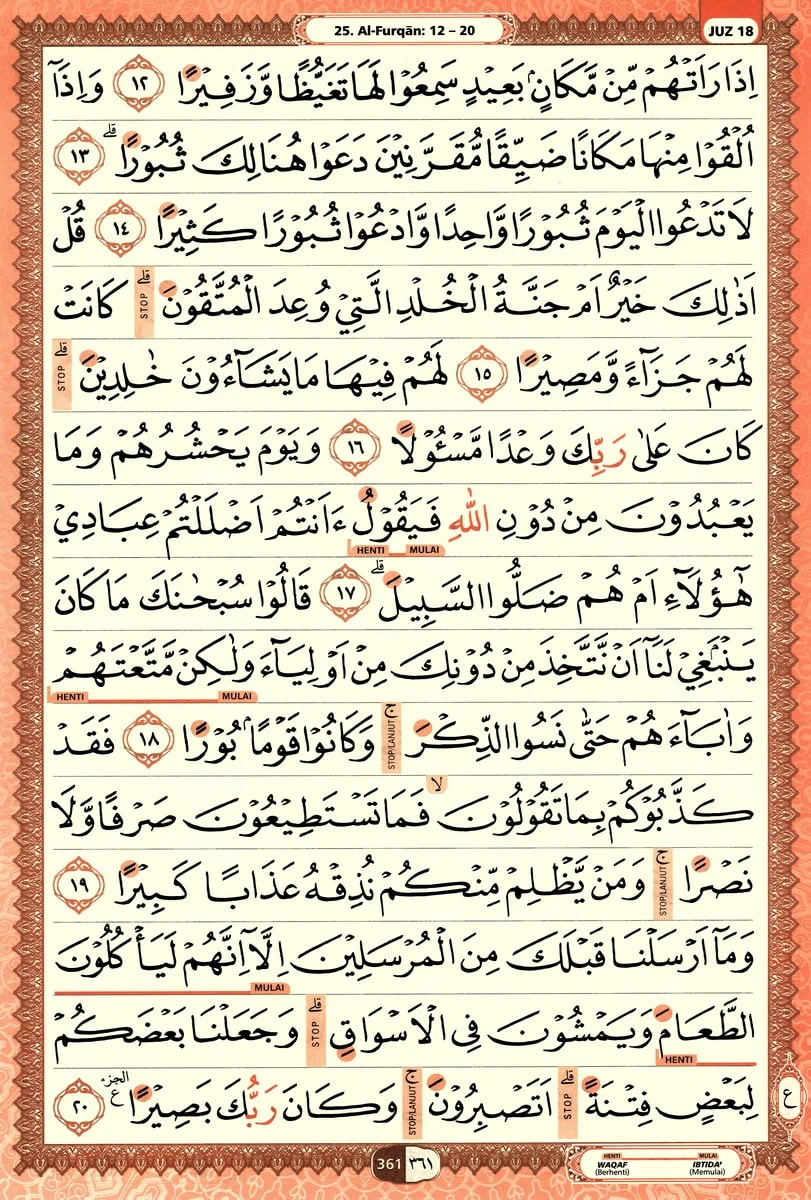 25. Al-Furqān: 12 – 20
JUZ 18
اِذَا رَاَتْهُمْ مِّنْ مَّكَانٍۢ بَعِيْدٍ سَمِعُوْا لَهَا تَغَيُّظًا وَّزَفِيْرًا ١٢ وَاِذَآ
اُلْقُوْا مِنْهَا مَكَانًا ضَيِّقًا مُّقَرَّنِيْنَ دَعَوْا هُنَالِكَ ثُبُوْرًاۗ ١٣
لَا تَدْعُوا الْيَوْمَ ثُبُوْرًا وَّاحِدًا وَّادْعُوْا ثُبُوْرًا كَثِيْرًا ١٤ قُلْ
اَذٰلِكَ خَيْرٌ اَمْ جَنَّةُ الْخُلْدِ الَّتِيْ وُعِدَ الْمُتَّقُوْنَۗ STOP كَانَتْ
لَهُمْ جَزَاۤءً وَّمَصِيْرًا ١٥ لَهُمْ فِيْهَا مَا يَشَاۤءُوْنَ خٰلِدِيْنَۗ STOP
كَانَ عَلٰى رَبِّكَ وَعْدًا مَّسْـُٔوْلًا ١٦ وَيَوْمَ يَحْشُرُهُمْ وَمَا
يَعْبُدُوْنَ مِنْ دُوْنِ اللّٰهِ فَيَقُوْلُ ءَاَنْتُمْ اَضْلَلْتُمْ عِبَادِيْ
HENTI MULAI
هٰٓؤُلَاۤءِ اَمْ هُمْ ضَلُّوا السَّبِيْلَۗ ١٧ قَالُوْا سُبْحٰنَكَ مَا كَانَ
يَنْۢبَغِيْ لَنَآ اَنْ نَّتَّخِذَ مِنْ دُوْنِكَ مِنْ اَوْلِيَاۤءَ وَلٰكِنْ مَّتَّعْتَهُمْ
HENTI MULAI
وَاٰبَاۤءَهُمْ حَتّٰى نَسُوا الذِّكْرَۚ STOP/LANJUT وَكَانُوْا قَوْمًاۢ بُوْرًا ١٨ فَقَدْ
كَذَّبُوْكُمْ بِمَا تَقُوْلُوْنَۙ فَمَا تَسْتَطِيْعُوْنَ صَرْفًا وَّلَا
نَصْرًاۚ STOP/LANJUT وَمَنْ يَّظْلِمْ مِّنْكُمْ نُذِقْهُ عَذَابًا كَبِيْرًا ١٩
وَمَآ اَرْسَلْنَا قَبْلَكَ مِنَ الْمُرْسَلِيْنَ اِلَّآ اِنَّهُمْ لَيَأْكُلُوْنَ
MULAI
الطَّعَامَ وَيَمْشُوْنَ فِى الْاَسْوَاقِۗ STOP وَجَعَلْنَا بَعْضَكُمْ
HENTI
لِبَعْضٍ فِتْنَةًۗ STOP اَتَصْبِرُوْنَۚ STOP/LANJUT وَكَانَ رَبُّكَ بَصِيْرًا ࣖ الجزء ٢٠
ع
361 ٣٦١
HENTI MULAI
WAQAF IBTIDA'
(Berhenti) (Memulai)